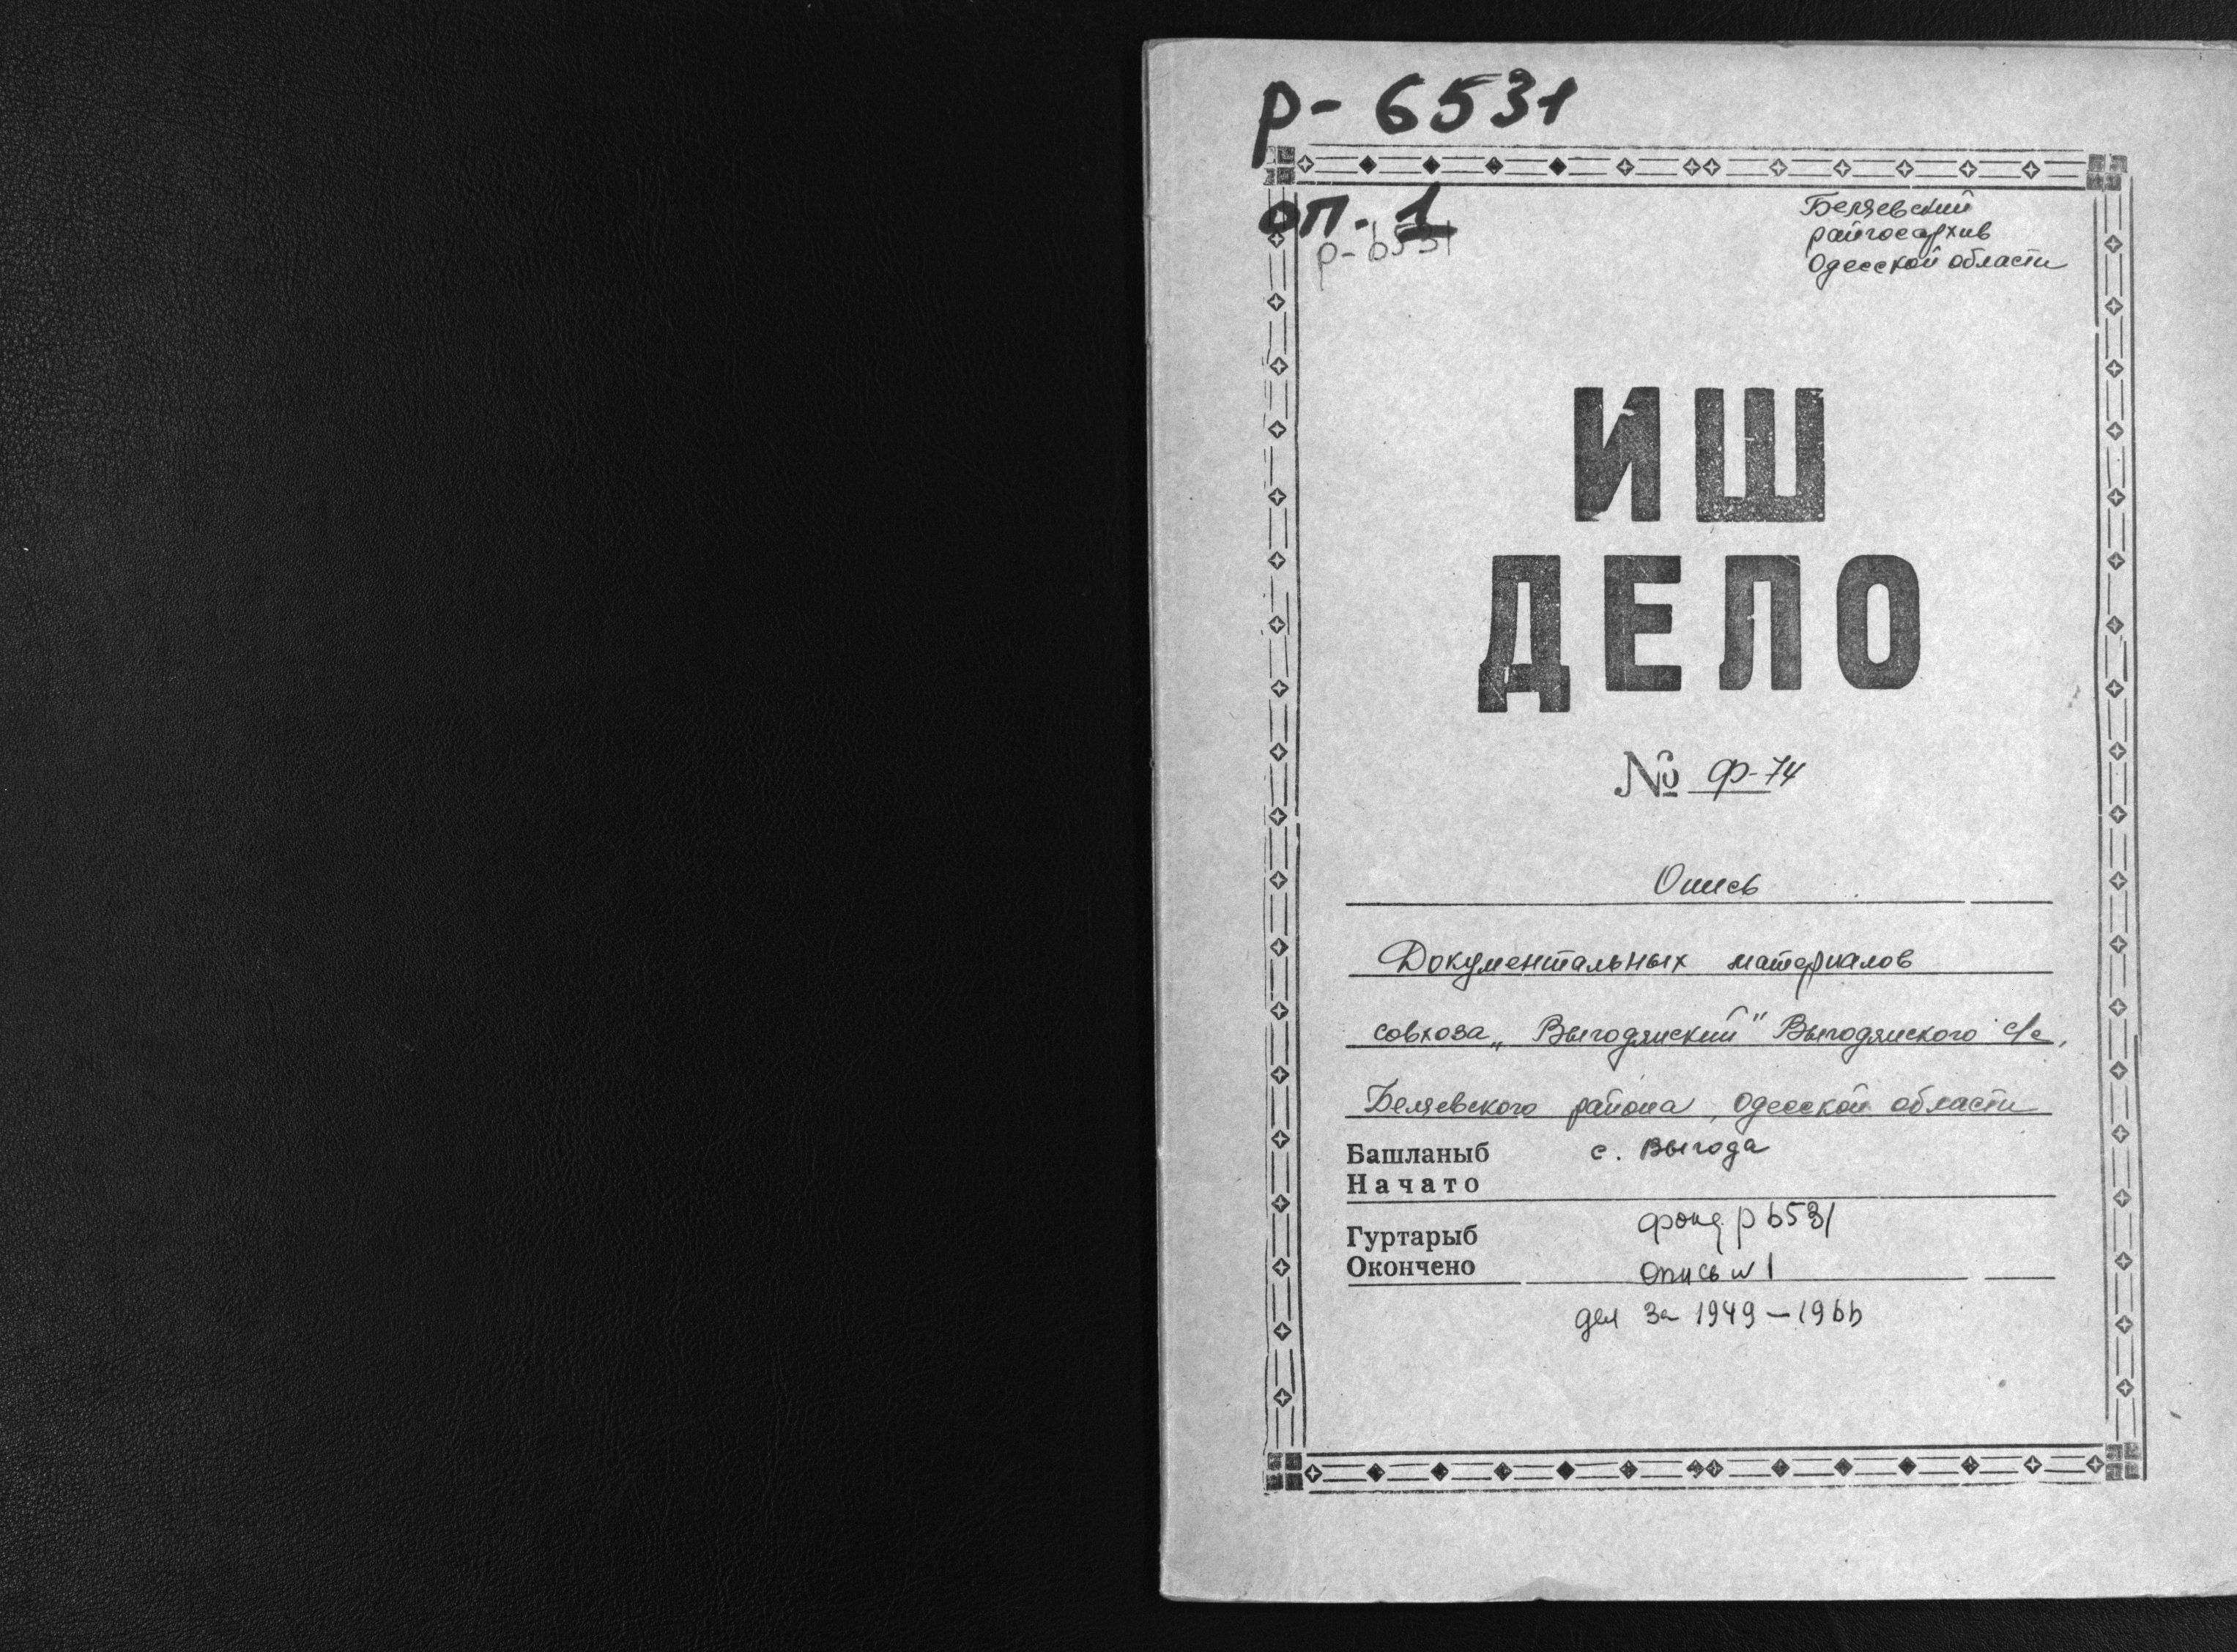 р-6531
оп. 1
р-6531
Беляевский
райгосархив
Одесской области
ИШ
ДЕЛО
№ Ф-74
Опись
Документальных материалов
совхоза „Выгодянский" Выгодянского с/с,
Беляевского района, Одесской области
Башланыб с. Выгода
Начато
Гуртарыб фонд р 6531
Окончено опись №1
дел за 1949 – 1966